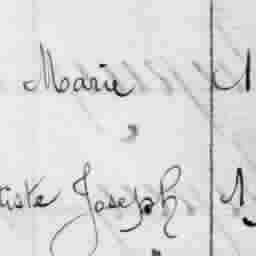 Marie 1
tiste Joseph 1